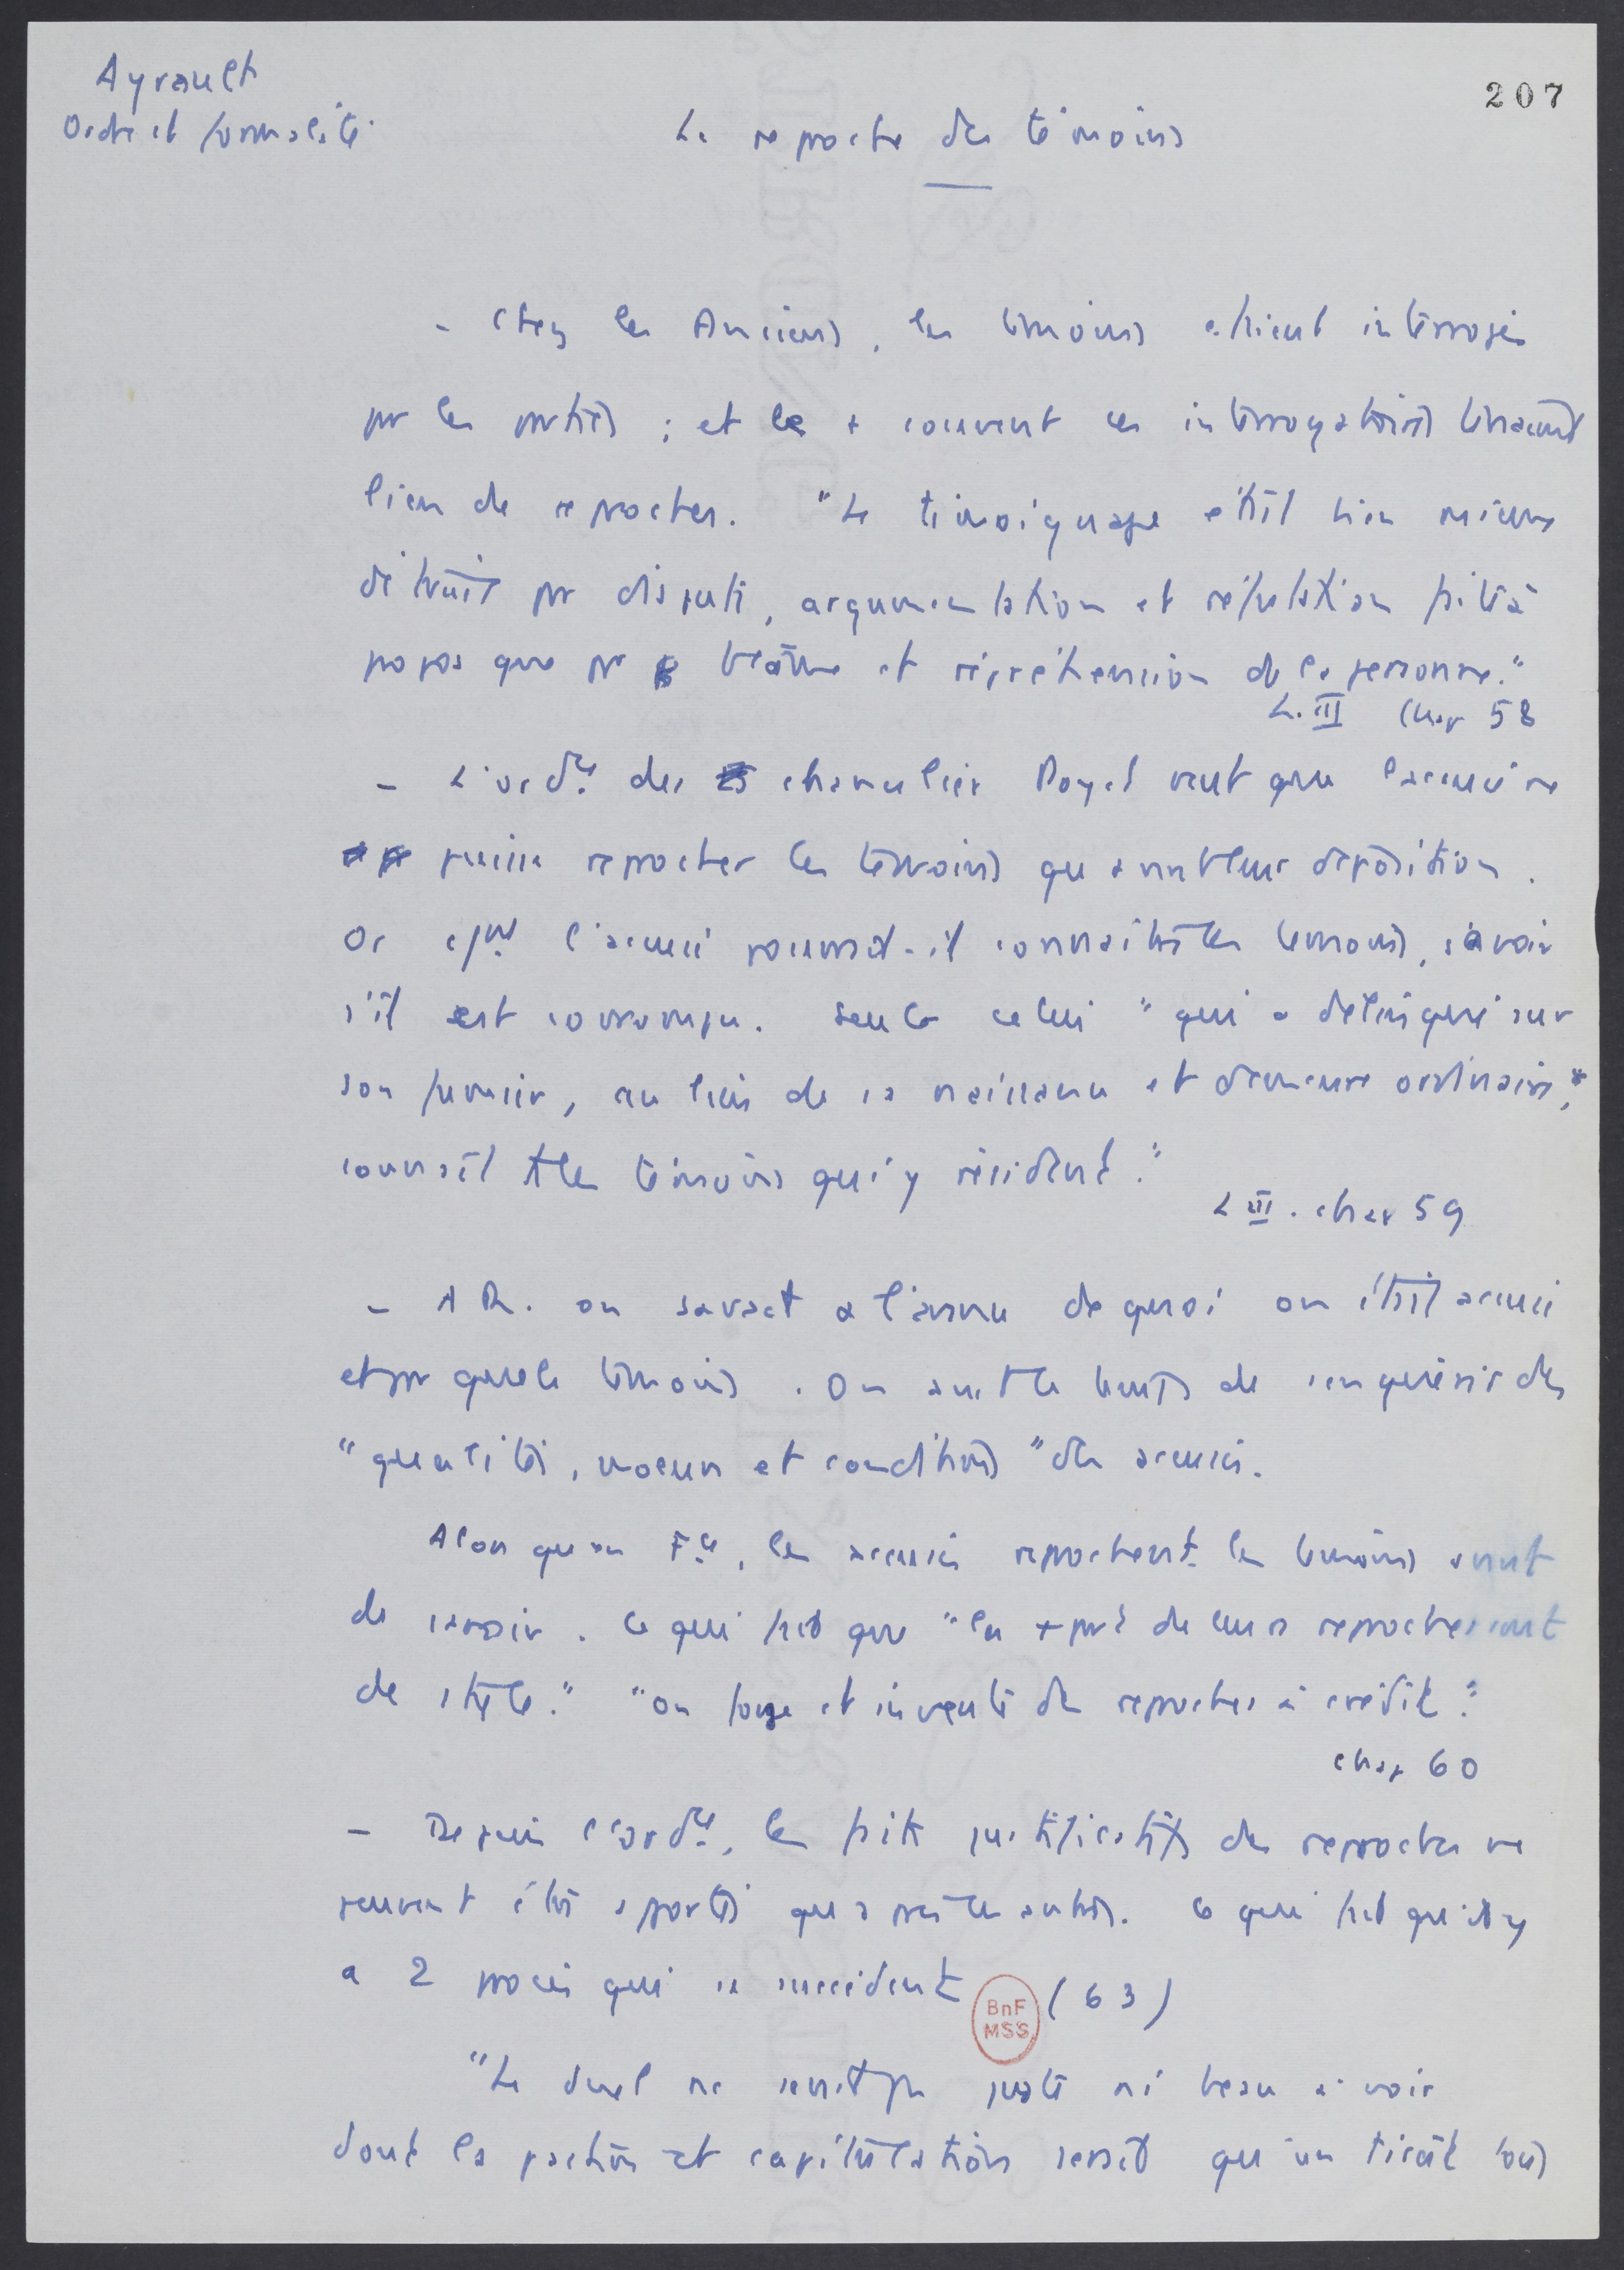 Ayrault
Ordre et formalité
207
Le reproche des témoins
- Chez les Anciens, les témoins étaient interrogés
par les parties ; et le + souvent ces interrogatoires tenaient
lieu de reproches. "Le témoignage était bien mieux
détruit par dispute, argumentation et réfutation faite à
propos que par blâme et répréhension de la personne."
L. III Chap 58
- L'ordce du chancelier Poyet veut que l'accusé ne
puisse reprocher les témoins qu'avant leur déposition.
Or cpt l'accusé pourrait-il connaître les témoins, savoir
s'il est corrompu. Seul celui "qui a délinqué sur
son fumier, au lieu de sa naissance et demeure ordinaire,"
connaît les témoins qui y résident."
L III. chap 59
- A R. on savait à l'avance de quoi on était accusé
et par quels témoins. On avait le temps de s'enquérir des
"qualités, moeurs et conditions" des accusés.
Alors qu'en Fce, les accusés reprochent les témoins avant
de savoir. Ce qui fait que "la + part de leurs reproches sont
de style." "On forge et invente des reproches à crédit."
chap 60
- Depuis l'ordce, les faits justificatifs des reproches ne
peuvent être apportés qu'après les autres. Ce qui fait qu'il y
a 2 procès qui se succèdent (63)
BnF
MSS
"Le duel ne serait pas juste ni beau à voir
dont la paction et capitulation serait qu'un tirât tous